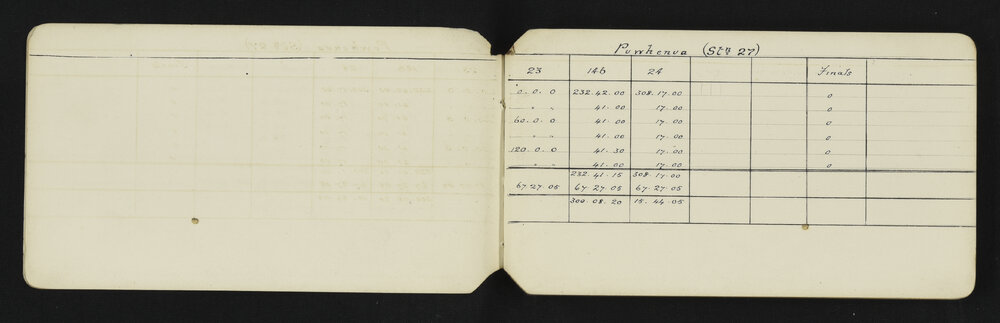 Purrhenua (Stn 27)
23 146 24 Finals
0.0.0 232.42.00 308.17.00 0
" " 41.00 17.00 0
60.0.0 41.00 17.00 0
" " 41.00 17.00 0
120.0.0 41.30 17.00 0
" " 41.00 17.00 0
232.41.15 308.17.00
67.27.05 67.27.05 67.27.05
300.08.20 15.44.05